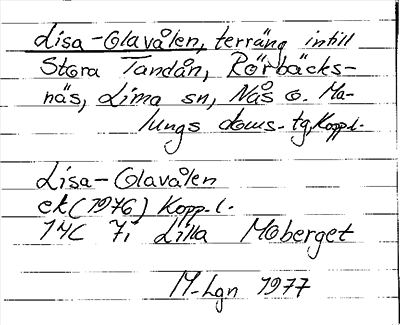 Lisa-Olavålen, terräng intill
Stora Tandån, Rörbäcks-
näs, Lima sn, Nås o. Ma-
lungs doms. tg, Kopp.l.
Lisa-Olavålen
ek (1976) Kopp.l.
14C 7i Lilla Moberget
M-Lgn 1977